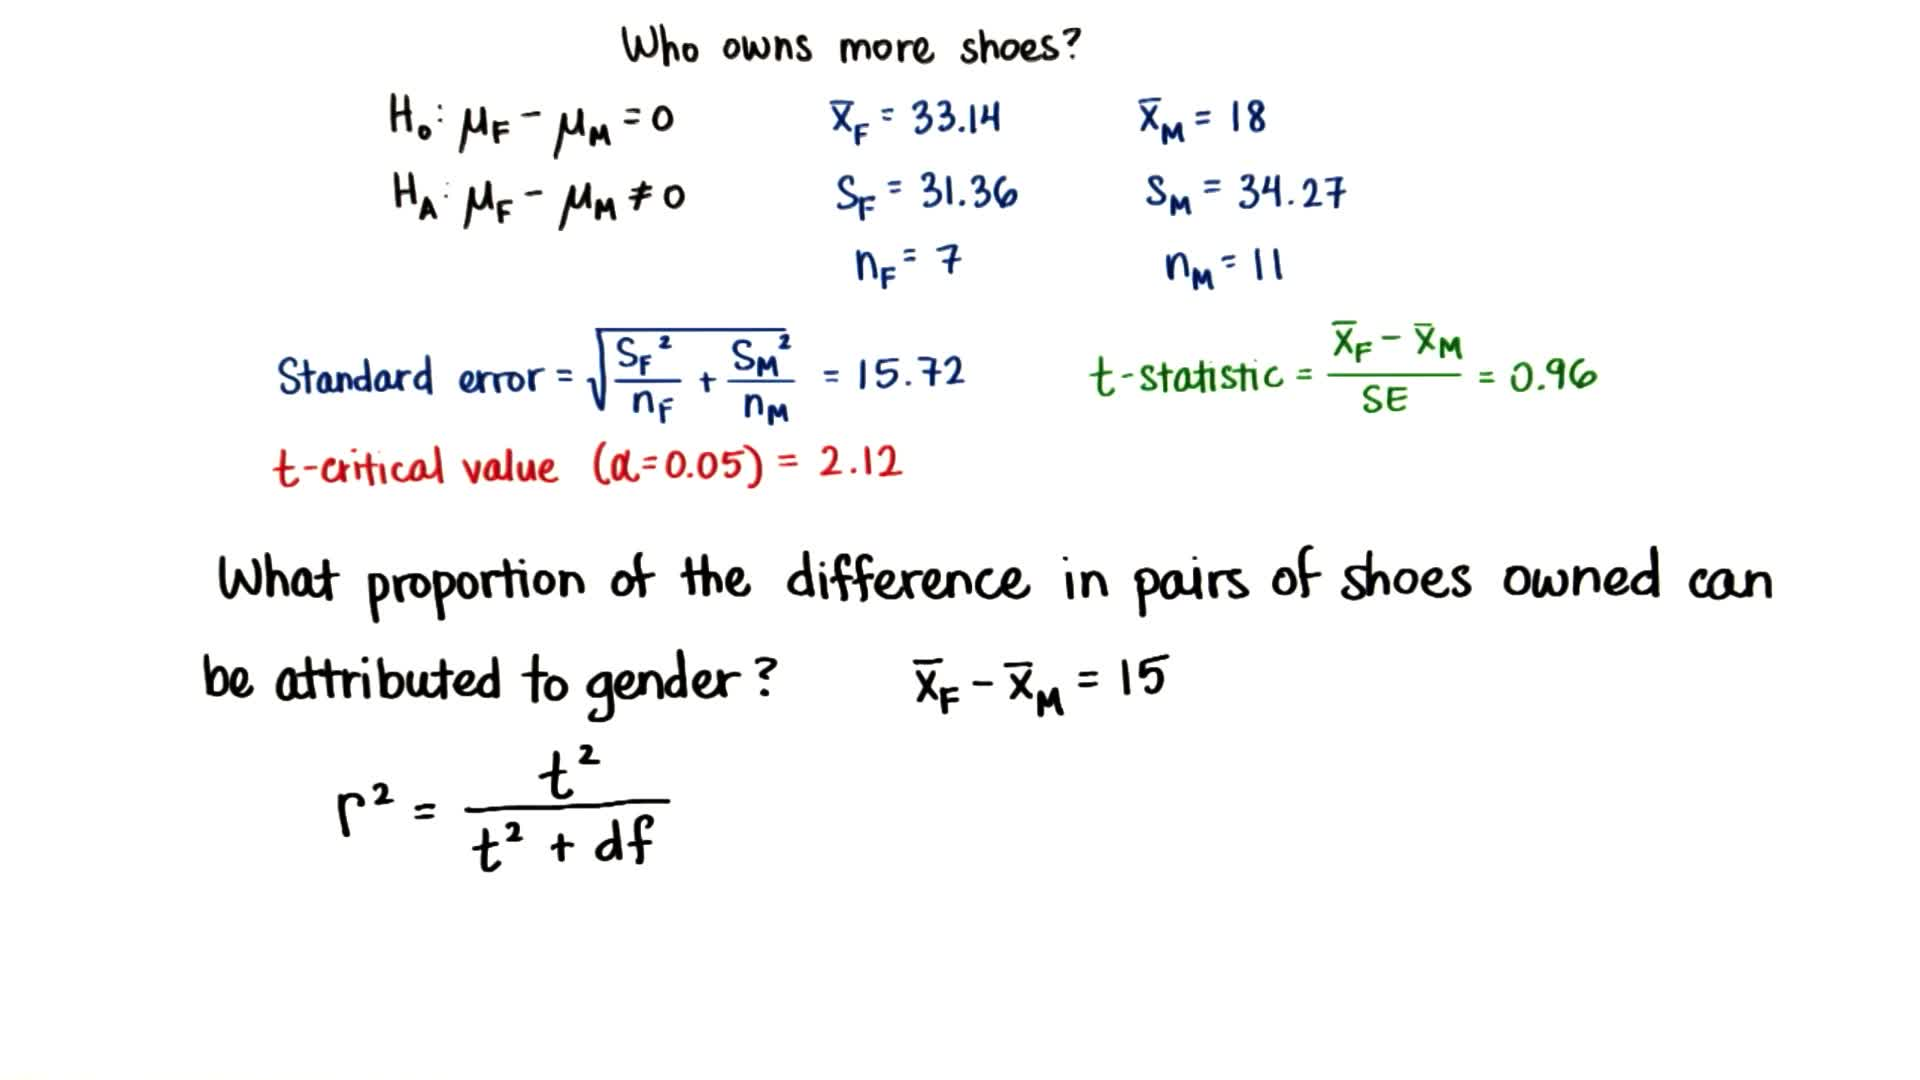 Who owns more shoes?
H₀: μF - μM = 0
x̄F = 33.14
x̄M = 18
HA: μF - μM ≠ 0
SF = 31.36
SM = 34.27
nF = 7
nM = 11
Standard error = √(SF²/nF + SM²/nM) = 15.72
t-statistic = (x̄F - x̄M)/SE = 0.96
t-critical value (α=0.05) = 2.12
What proportion of the difference in pairs of shoes owned can
be attributed to gender?
x̄F - x̄M = 15
r² = t²/(t² + df)